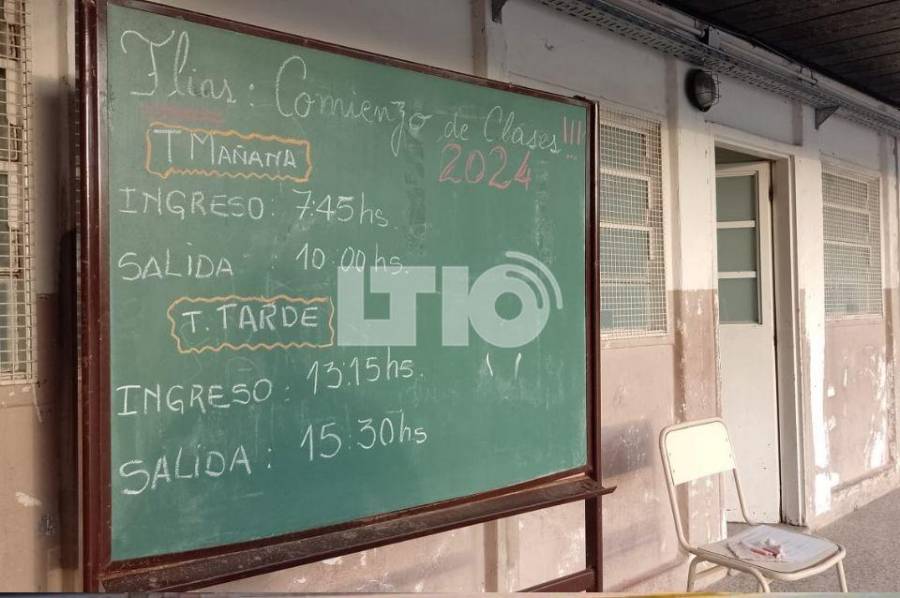 Flias: Comienzo de Clases!!!
2024
T MAÑANA
INGRESO: 7:45hs.
SALIDA 10:00hs.
T. TARDE
INGRESO: 13:15hs.
SALIDA: 15:30hs
LT10